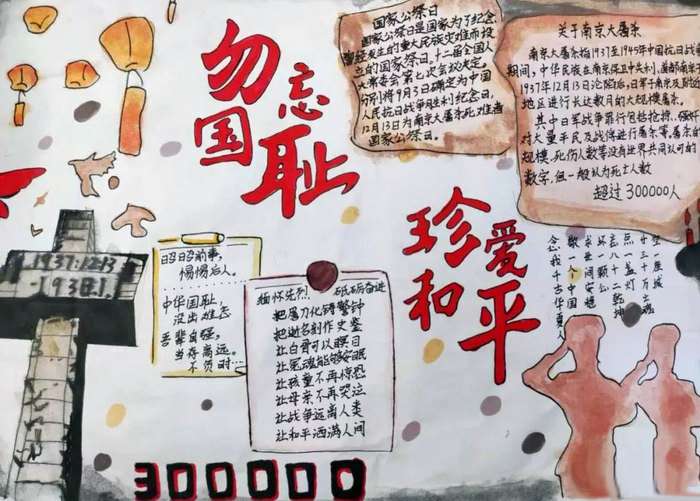 勿忘
国耻
国家公祭日
国家公祭日是国家为了纪念
曾经发生的重大民族灾难而设
立的国家祭日,十二届全国人
大常委会第七次会议决定,
分别将9月3日确定为中国
人民抗日战争胜利纪念日,
12月13日为南京大屠杀死难者
国家公祭日。
关于南京大屠杀
南京大屠杀指1937至1945年中国抗日战争
期间,中华民族在南京保卫中失利,首都南京于
1937年12月13日沦陷后,日军于南京及附近
地区进行长达数月的大规模屠杀。
其中日军战争罪行包括抢掠、强奸
对大量平民及战俘进行屠杀等,屠杀的
规模,死伤人数等没有世界共同认可的
数字,但一般认为死亡人数
超过300000人
珍爱
和平
1937.12.13
-1938.1
昭昭前事,
惕惕后人。
中华国耻,
没出难忘
吾辈自强,
当存高远。
不负时…
缅怀先烈,砥砺奋进
把屠刀化铸警钟
把逝名刻作史鉴
让白骨可以瞑目
让冤魂能够安眠
让孩童不再惊恐
让母亲不再哭泣
让战争远离人类
让和平洒满人间
一座城
三十万亡魂
点一盏灯
言八一乾坤
环一颗心
求世间安想
敬一人中国
念我千古华夏人
300000